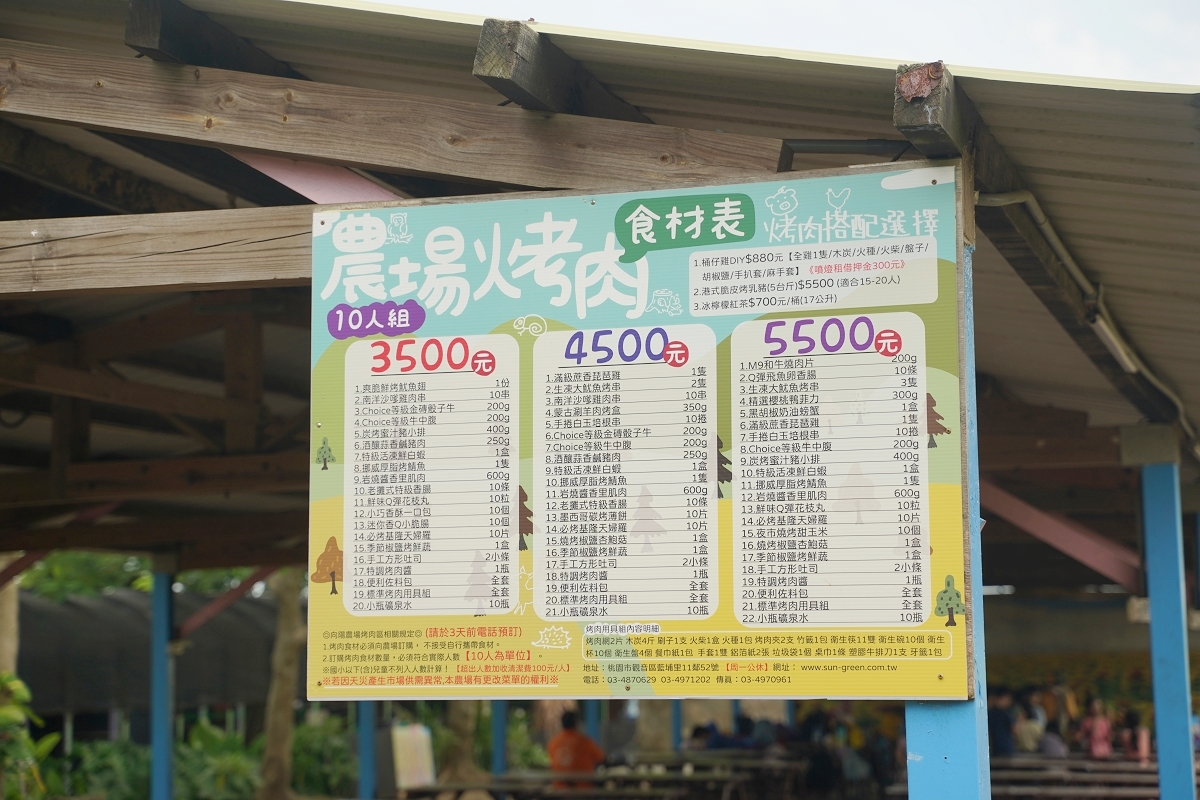 農場烤肉
食材表
烤肉搭配選擇
1.桶仔雞DIY$880元【全雞1隻/木炭/火種/火柴/盤子/
胡椒鹽/手扒套/麻手套】《噴燈租借押金300元》
2.港式脆皮烤乳豬(5台斤)$5500 (適合15-20人)
3.冰檸檬紅茶$700元/桶(17公升)
10人組
3500元
1.爽脆鮮烤魷魚翅 1份
2.南洋沙嗲雞肉串 10串
3.Choice等級金磚骰子牛 200g
4.Choice等級牛中腹 200g
5.炭烤蜜汁豬小排 400g
6.酒釀蒜香鹹豬肉 250g
7.特級活凍鮮白蝦 1盒
8.挪威厚脂烤鯖魚 1隻
9.岩燒醬香里肌肉 600g
10.老攤式特級香腸 10條
11.鮮味Q彈花枝丸 10粒
12.小巧香酥一口包 10個
13.迷你香Q小脆腸 10個
14.必烤基隆天婦羅 10片
15.季節椒鹽烤鮮蔬 1盒
16.手工方形吐司 2小條
17.特調烤肉醬 1瓶
18.便利佐料包 全套
19.標準烤肉用具組 全套
20.小瓶礦泉水 10瓶
4500元
1.滿級蔗香琵琶雞 1隻
2.生凍大魷魚烤串 2隻
3.南洋沙嗲雞肉串 10串
4.蒙古涮羊肉烤盒 350g
5.手捲白玉培根串 10捲
6.Choice等級金磚骰子牛 200g
7.Choice等級牛中腹 200g
8.酒釀蒜香鹹豬肉 250g
9.特級活凍鮮白蝦 1盒
10.挪威厚脂烤鯖魚 1隻
11.岩燒醬香里肌肉 600g
12.老攤式特級香腸 10條
13.墨西哥碳烤薄餅 10片
14.必烤基隆天婦羅 10片
15.燒烤椒鹽杏鮑菇 1盒
16.季節椒鹽烤鮮蔬 1盒
17.手工方形吐司 2小條
18.特調烤肉醬 1瓶
19.便利佐料包 全套
20.標準烤肉用具組 全套
21.小瓶礦泉水 10瓶
5500元
1.M9和牛燒肉片 200g
2.Q彈飛魚卵香腸 10條
3.生凍大魷魚烤串 3隻
4.精選櫻桃鴨菲力 300g
5.黑胡椒奶油螃蟹 1盒
6.滿級蔗香琵琶雞 1隻
7.手捲白玉培根串 10捲
8.Choice等級牛中腹 200g
9.炭烤蜜汁豬小排 400g
10.特級活凍鮮白蝦 1盒
11.挪威厚脂烤鯖魚 1隻
12.岩燒醬香里肌肉 600g
13.鮮味Q彈花枝丸 10粒
14.必烤基隆天婦羅 10片
15.夜市燒烤甜玉米 10個
16.燒烤椒鹽杏鮑菇 1盒
17.季節椒鹽烤鮮蔬 1盒
18.手工方形吐司 2小條
19.特調烤肉醬 1瓶
20.便利佐料包 全套
21.標準烤肉用具組 全套
22.小瓶礦泉水 10瓶
◎向陽農場烤肉區相關規定◎ (請於3天前電話預訂)
1.烤肉食材必須向農場訂購，不接受自行攜帶食材。
2.訂購烤肉食材數量，必須符合實際人數【10人為單位】。
※國小以下(含)兒童不列入人數計算！【超出人數加收清潔費100元/人】
※若因天災產生市場供需異常,本農場有更改菜單的權利※
烤肉用具組內容明細
烤肉網2片 木炭4斤 刷子1支 火柴1盒 火種1包 烤肉夾2支 竹籤1包 衛生筷11雙 衛生碗10個 衛生
杯10個 衛生盤4個 餐巾紙1包 手套1雙 鋁箔紙2張 垃圾袋1個 桌巾1條 塑膠牛排刀1支 牙籤1包
地址：桃園市觀音區藍埔里11鄰52號 【周一公休】網址： www.sun-green.com.tw
電話：03-4870629 03-4971202 傳真：03-4970961